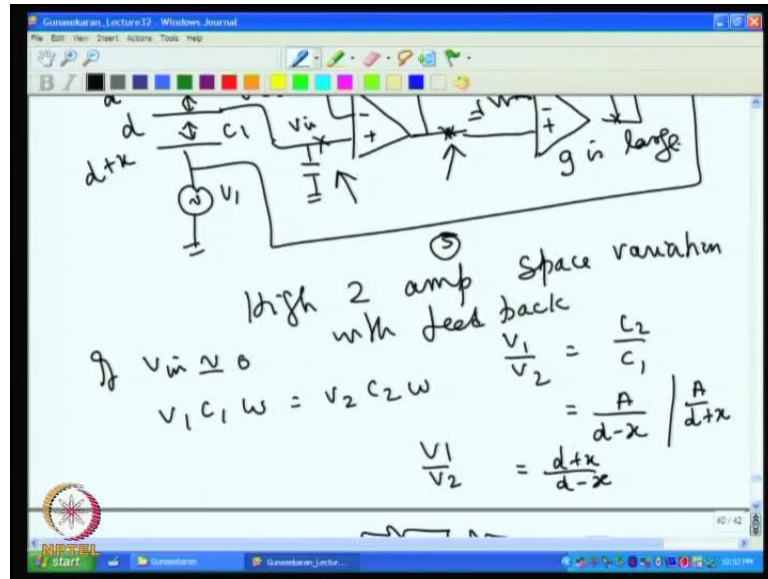 Gunasekaran_Lecture32 - Windows Journal
File Edit View Insert Actions Tools Help
B I
d
d+x
C1
V1
Vin
-
+
-
+
g is large
5
High Z amp space variation
with feed back
If Vin ≃ 0
V1 C1 W = V2 C2 W
V1/V2 = C2/C1
= A/d-x | A/d+x
V1/V2 = d+x/d-x
40 / 42
NPTEL
start
Gunasekaran
Gunasekaran_Lectur...
10:52 PM